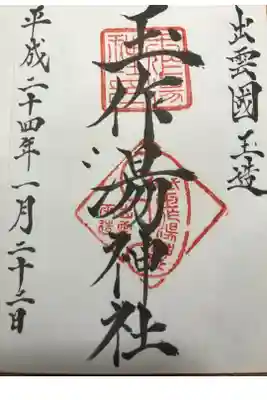 出雲國 玉造
玉作湯神社
平成二十四年一月二十二日